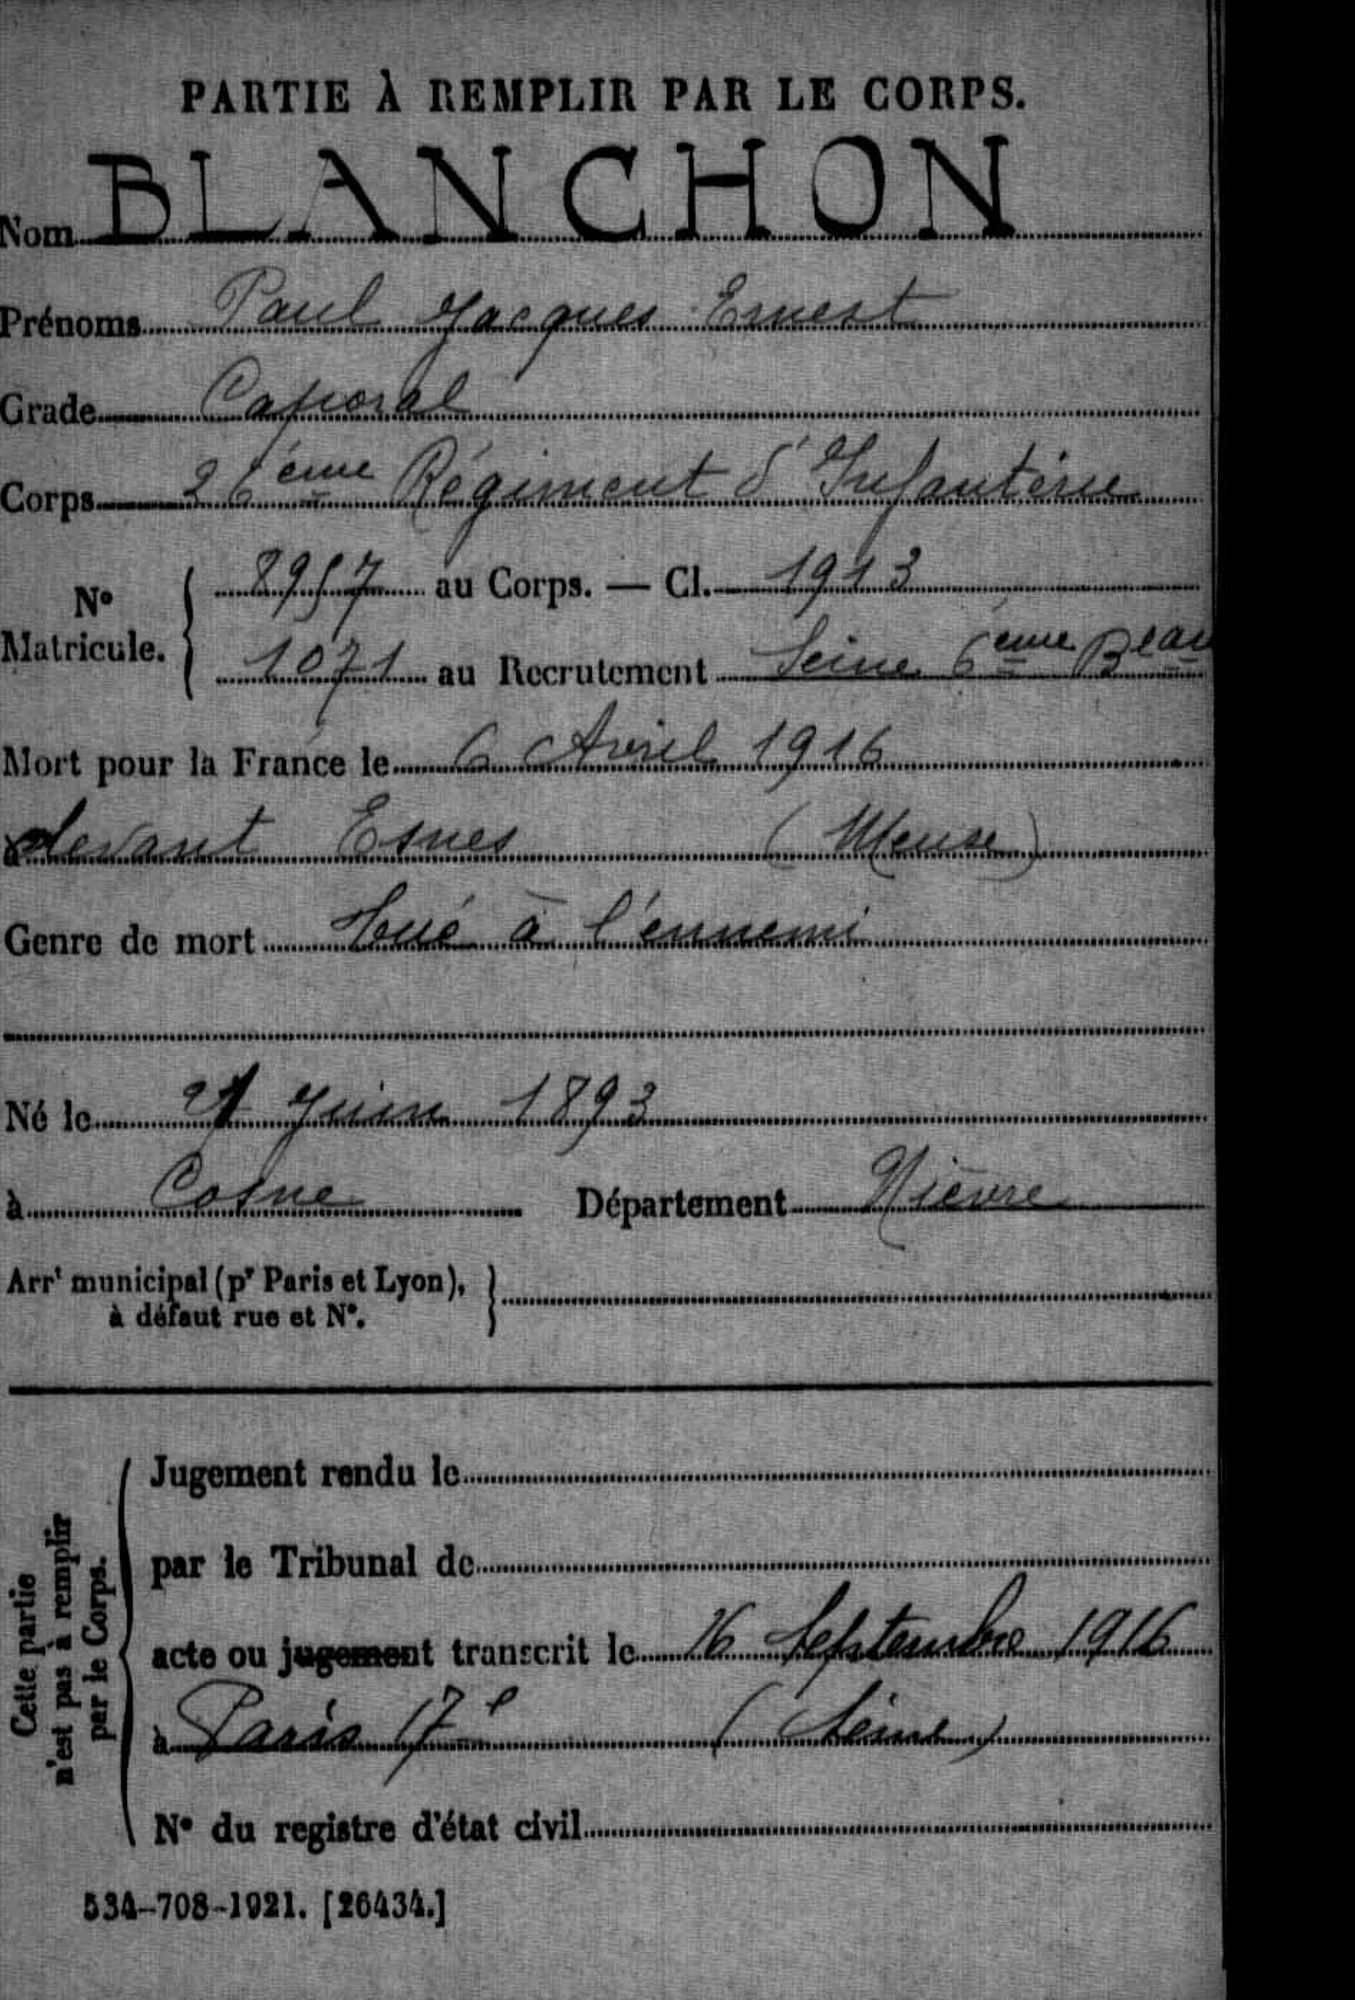 PARTIE À REMPLIR PAR LE CORPS.
Nom BLANCHON
Prénoms Paul Jacques Ernest
Grade Caporal
Corps 26ème Régiment d'Infanterie
N° Matricule. 8957 au Corps. — Cl. 1913
1071 au Recrutement Seine 6ème Beau
Mort pour la France le 6 Avril 1916
à devant Esnes (Meuse)
Genre de mort tué à l'ennemi
Né le 21 Juin 1893
à Cosne Département Nièvre
Arrt municipal (pr Paris et Lyon),
à défaut rue et N°.
Cette partie
n'est pas à remplir
par le Corps.
Jugement rendu le
par le Tribunal de
acte ou jugement transcrit le 16 Septembre 1916
à Paris 17e (Seine)
N° du registre d'état civil
534-708-1921. [26434.]